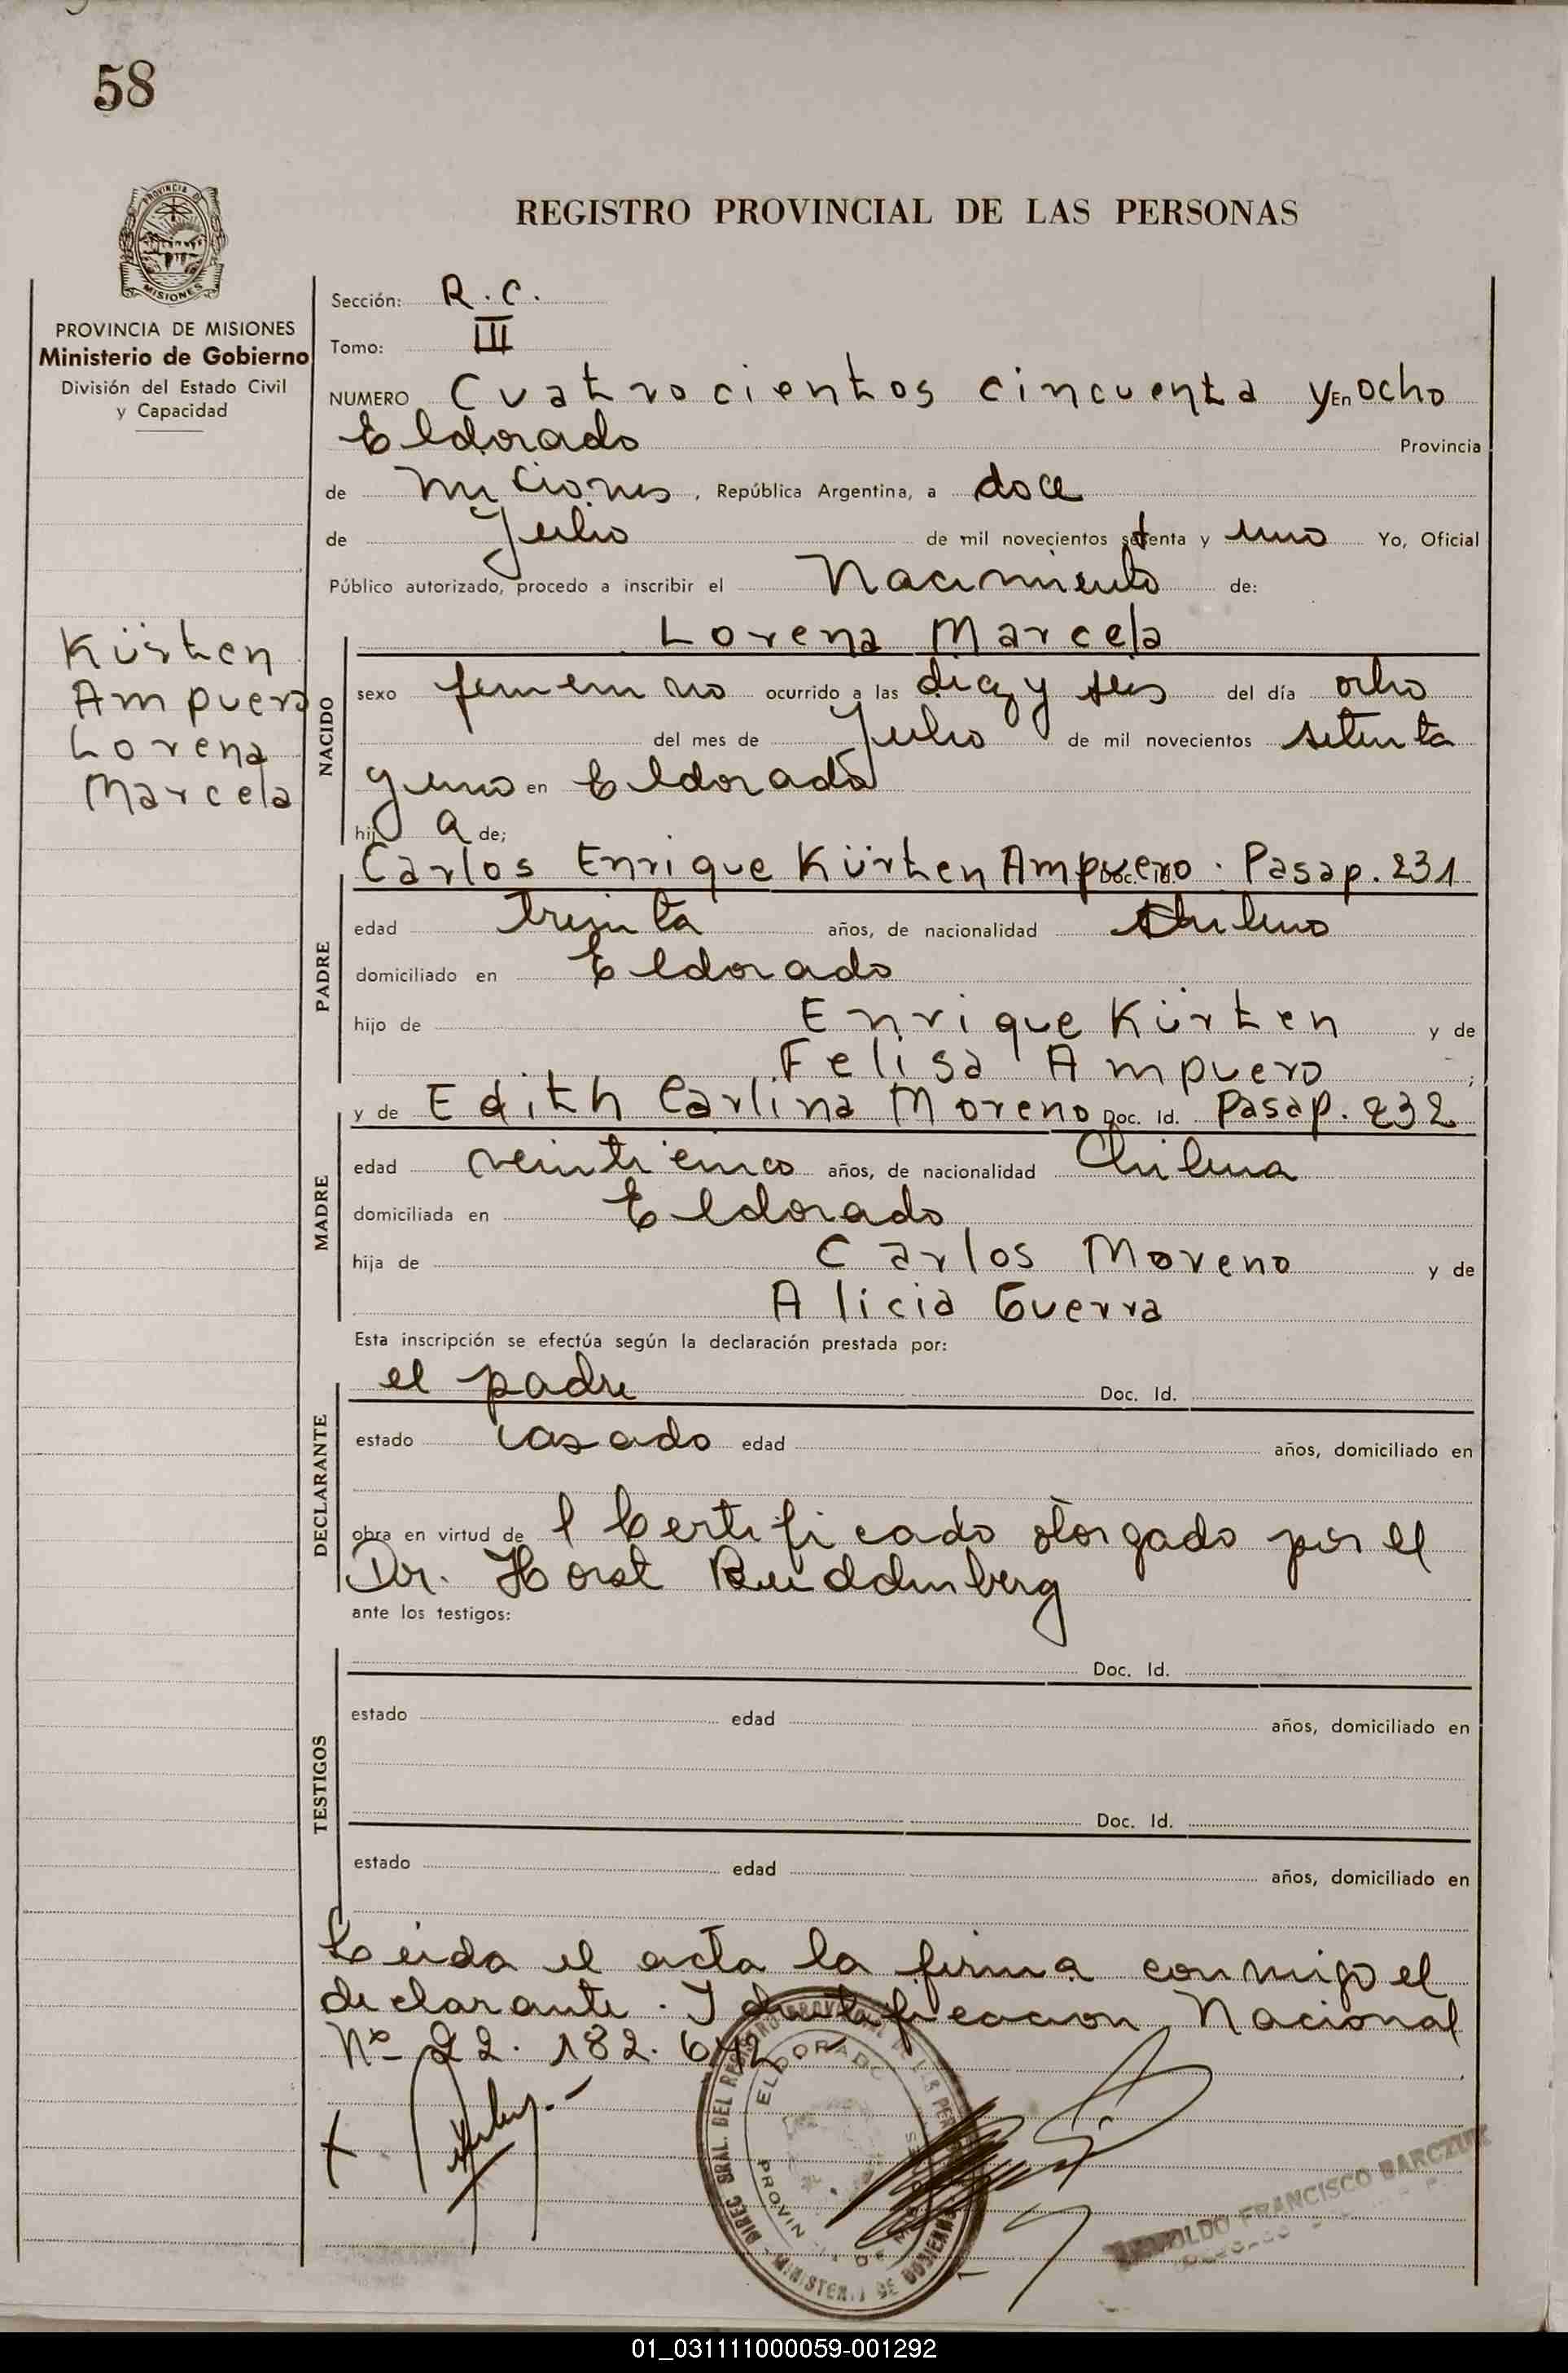 58
REGISTRO PROVINCIAL DE LAS PERSONAS
PROVINCIA DE
MISIONES
PROVINCIA DE MISIONES
Ministerio de Gobierno
División del Estado Civil
y Capacidad
Kürten
Ampuero
Lorena
Marcela
Sección: R. C.
Tomo: III
NUMERO Cuatrocientos cincuenta y ocho En
Eldorado Provincia
de Miciones, República Argentina, a doce
de Julio de mil novecientos setenta y uno Yo, Oficial
Público autorizado, procedo a inscribir el Nacimiento de:
NACIDO
Lorena Marcela
sexo femenino ocurrido a las diez y seis del día ocho
del mes de Julio de mil novecientos setenta
y uno en Eldorado
hij a de;
PADRE
Carlos Enrique Kürten Ampuero. Doc. Id. Pasap. 231
edad treinta años, de nacionalidad Chileno
domiciliado en Eldorado
hijo de Enrique Kürten y de
Felisa Ampuero ;
MADRE
y de Edith Carlina Moreno Doc. Id. Pasap. 232
edad veinticinco años, de nacionalidad Chilena
domiciliada en Eldorado
hija de Carlos Moreno y de
Alicia Guerra
Esta inscripción se efectúa según la declaración prestada por:
DECLARANTE
el padre Doc. Id.
estado casado edad años, domiciliado en
obra en virtud de l Certificado otorgado por el
Dr. Horst Buddenberg
ante los testigos:
TESTIGOS
Doc. Id.
estado edad años, domiciliado en
Doc. Id.
estado edad años, domiciliado en
Leida el acta la firma conmigo el
declarante. Identificacion Nacional
Nº 22.182.642.-
DIREC. GRAL. DEL REGISTRO PROVINCIAL DE LAS PERSONAS
MINISTERIO DE GOBIERNO
ELDORADO
PROVINCIA DE MISIONES
FRANCISCO BARCZUK
01_031111000059-001292